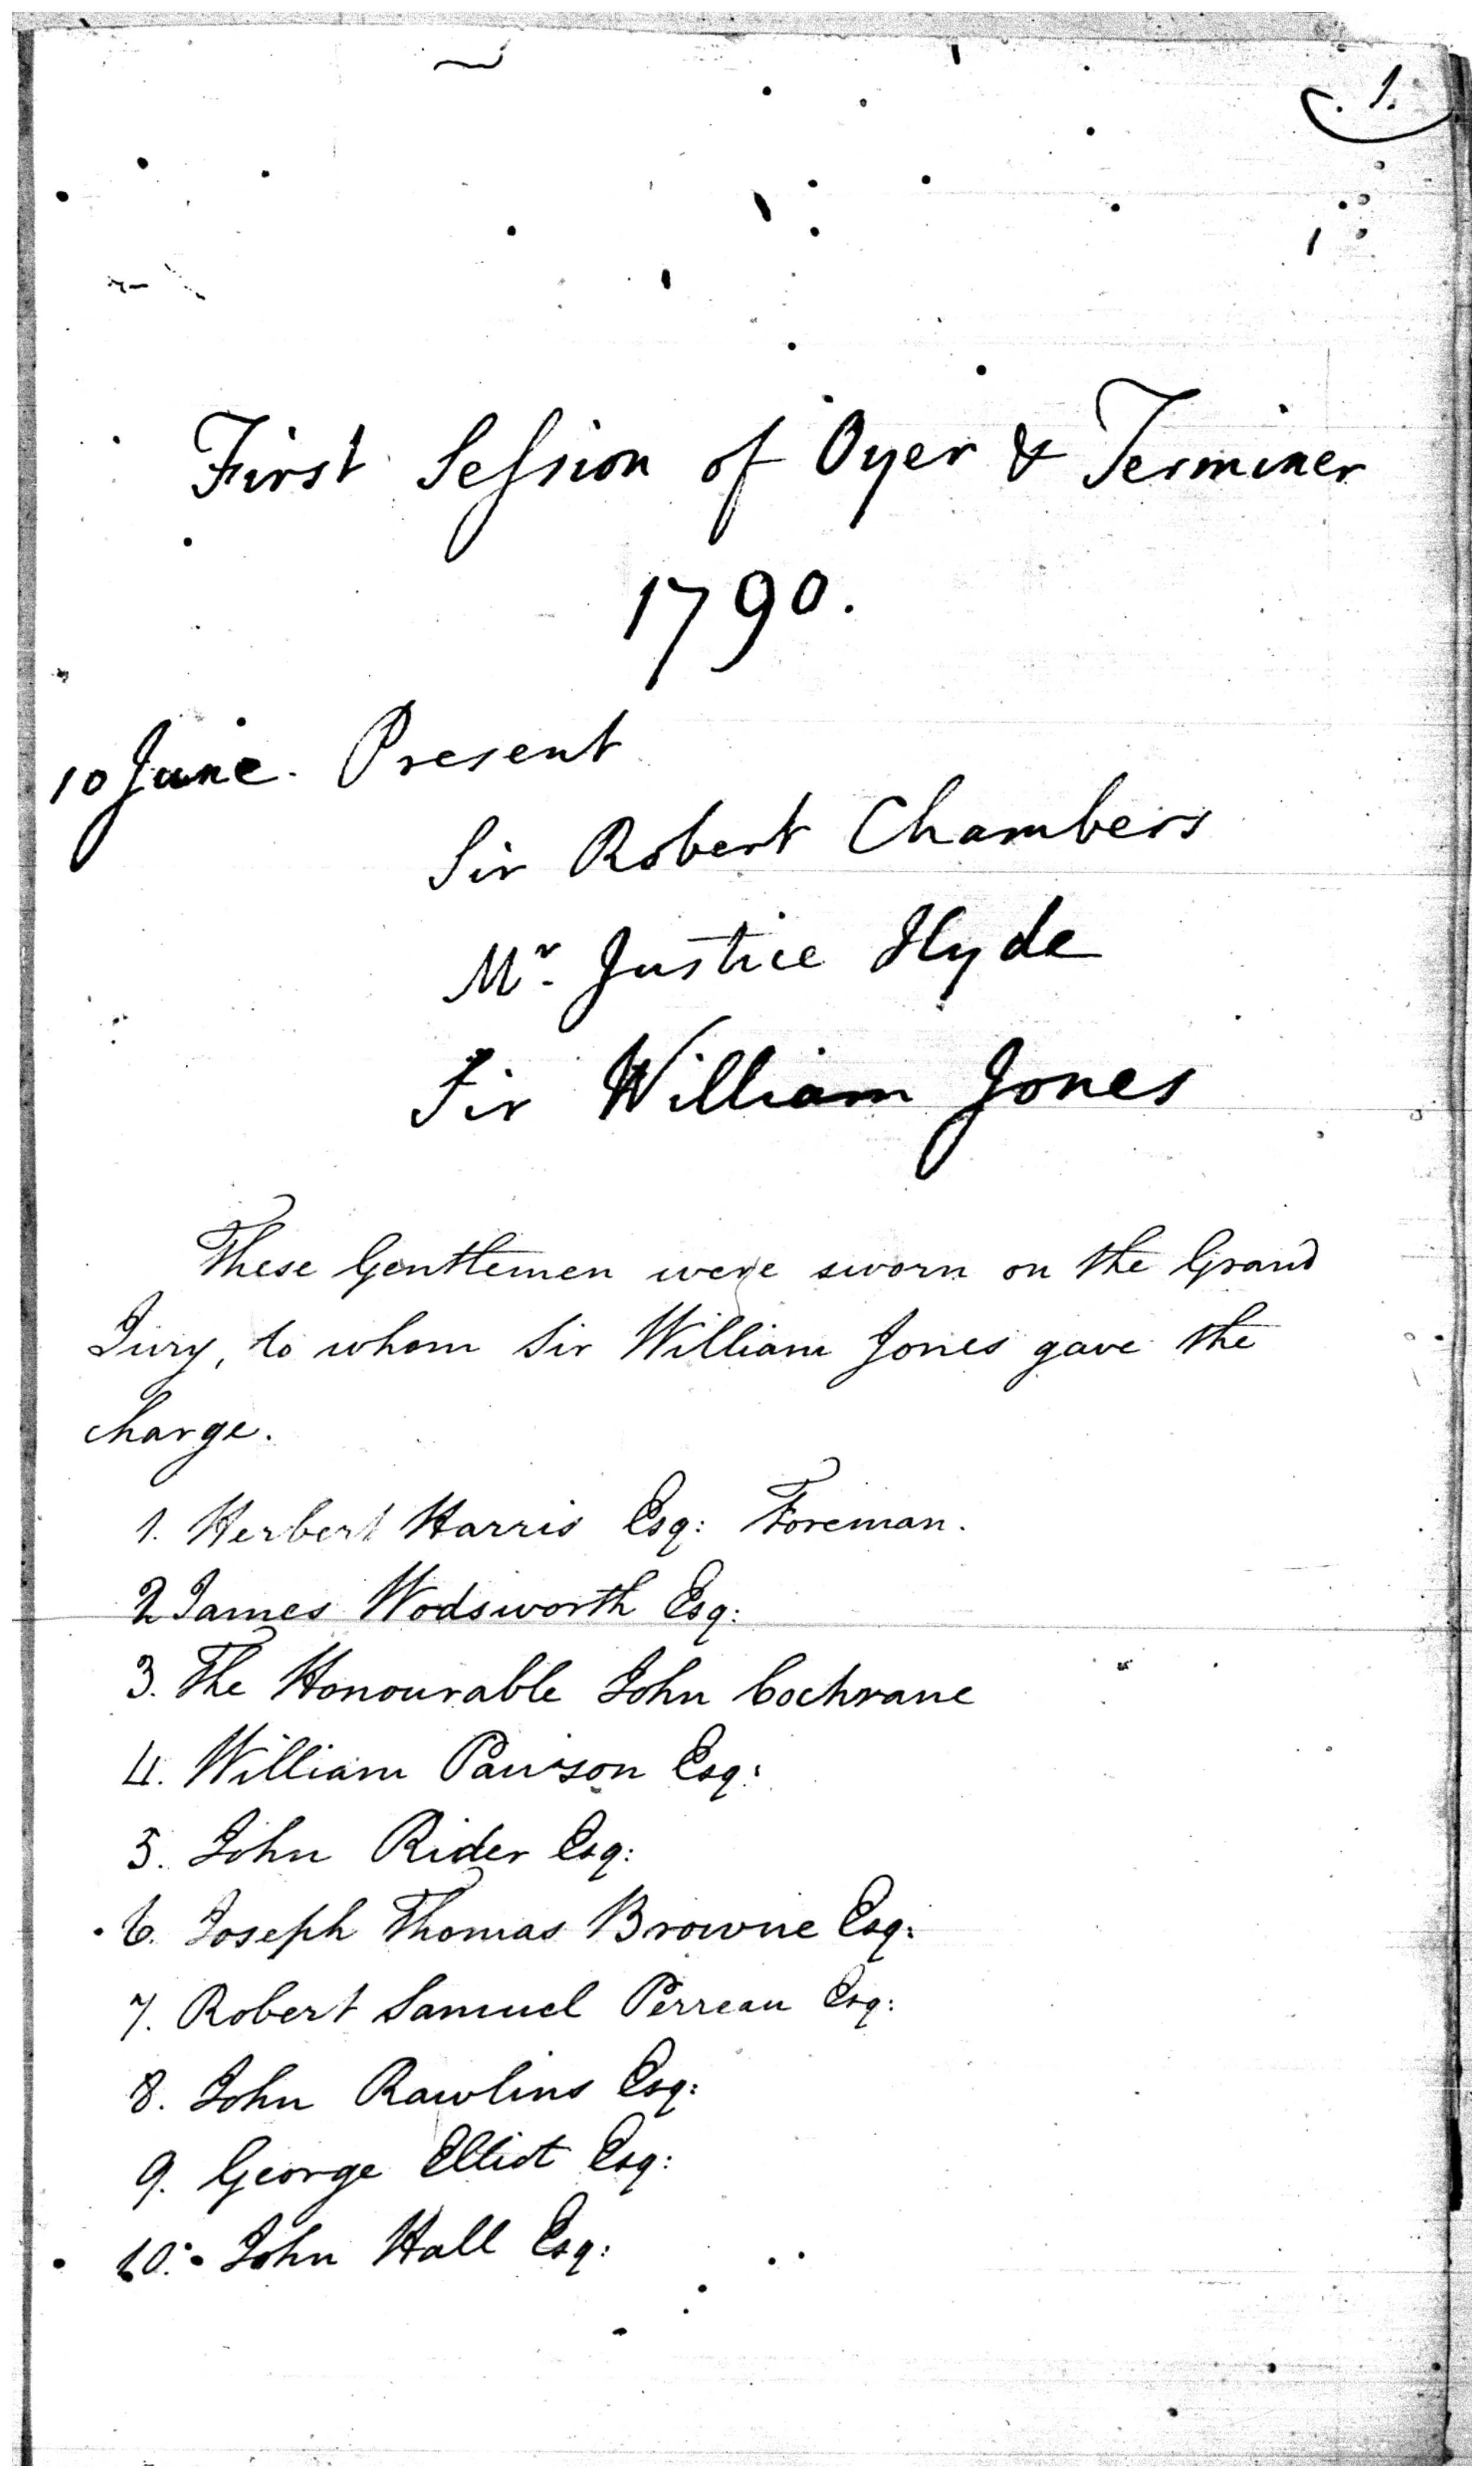 1.
First Session of Oyer & Terminer
1790.
10 June. Present
Sir Robert Chambers
Mr. Justice Hyde
Sir William Jones
These Gentlemen were sworn on the Grand
Jury, to whom Sir William Jones gave the
charge.
1. Herbert Harris Esq: Foreman.
2 James Wodsworth Esq:
3. The Honourable John Cochrane
4. William Pawson Esq:
5. John Rider Esq:
6. Joseph Thomas Browne Esq:
7. Robert Samuel Perreau Esq:
8. John Rawlins Esq:
9. George Elliot Esq:
10. John Hall Esq: